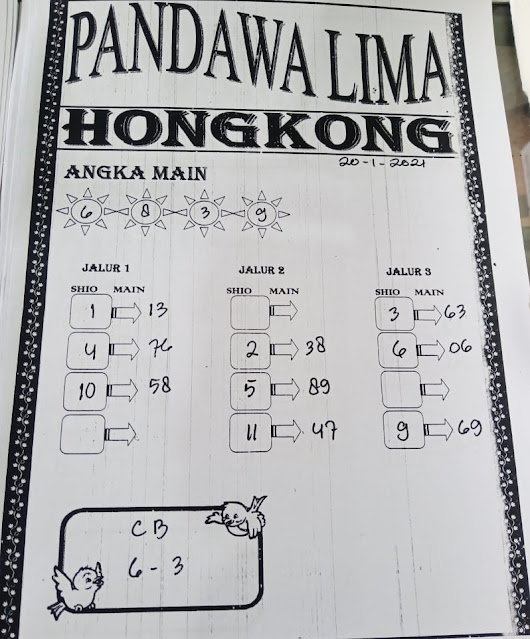 PANDAWA LIMA
HONGKONG
20-1-2021
ANGKA MAIN
6 8 3 9
JALUR 1 JALUR 2 JALUR 3
SHIO MAIN SHIO MAIN SHIO MAIN
1 13 3 63
4 76 2 38 6 06
10 58 5 89
11 47 9 69
CB
6-3